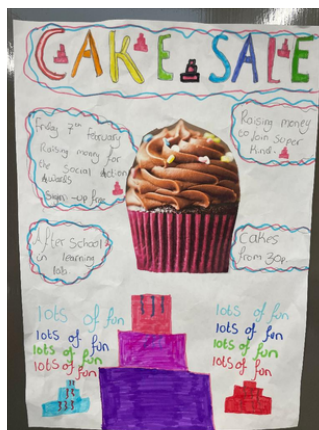 CAKE SALE
Friday 7th February
Raising money for
the Social Action
Awards
Sign-up fee
Raising money
to Join Super
Kind.
After School
in learning
lab
Cakes
from 30p
lots of fun
lots of fun
lots of fun
lots of fun
lots of fun
lots of fun
lots of fun
lots of fun